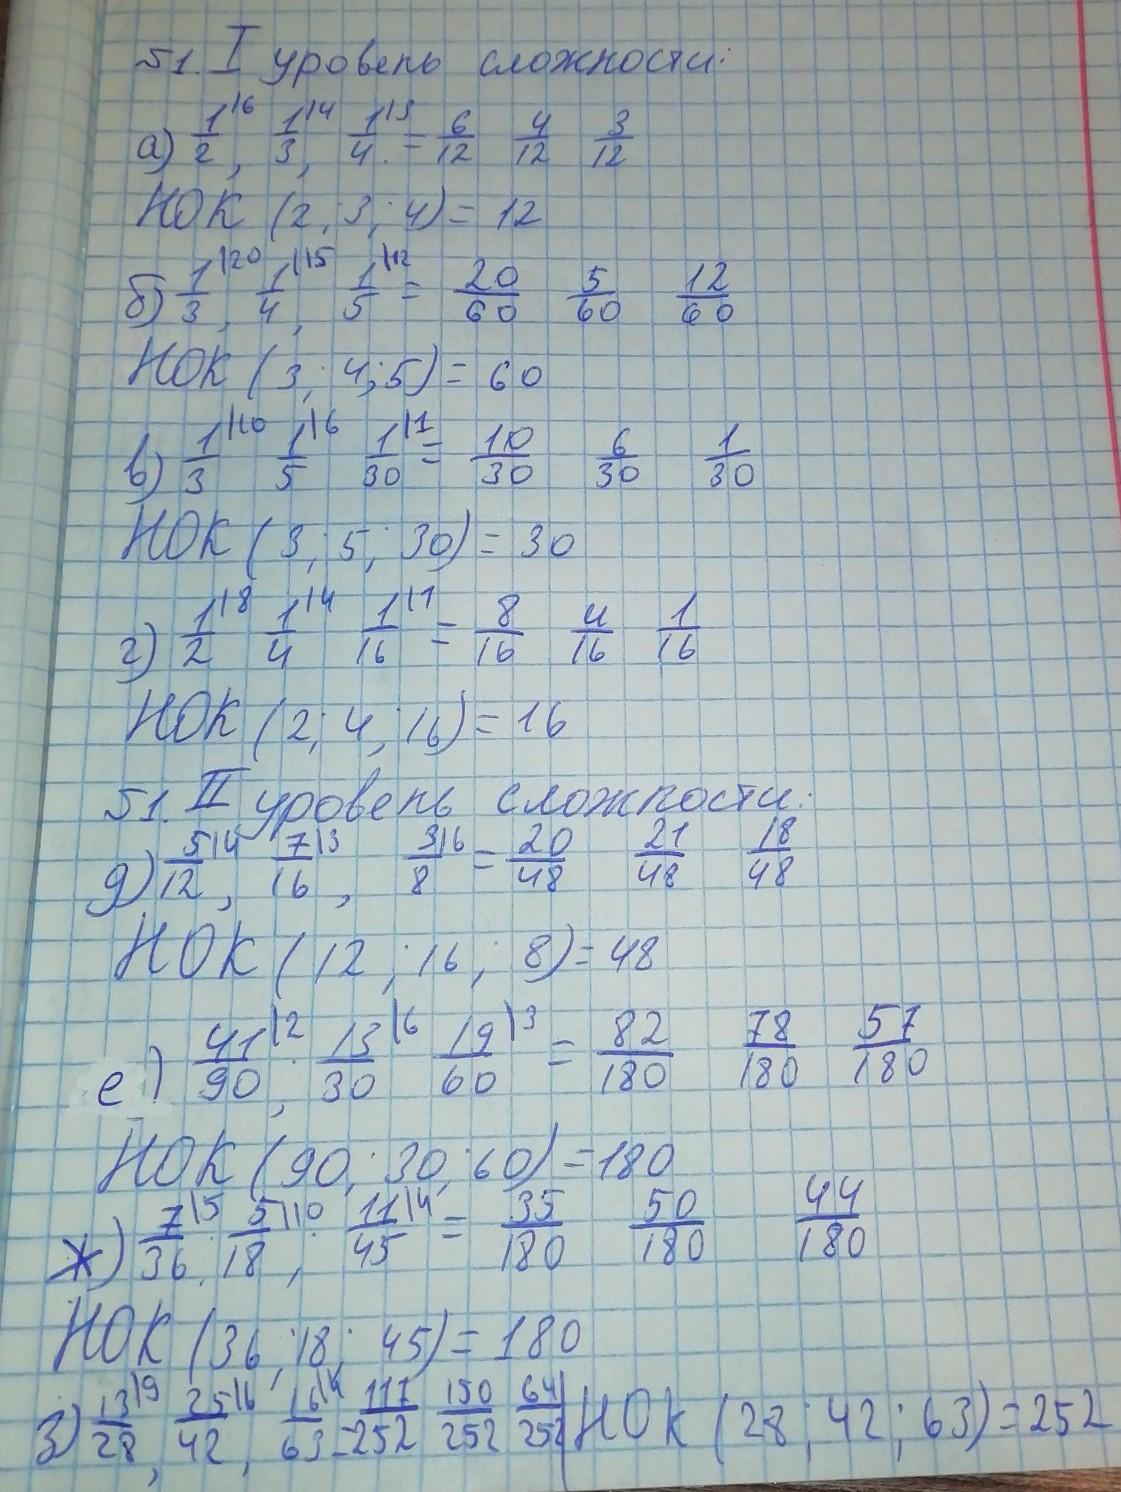 51. I уровень сложности:
а) 1/2 |6, 1/3 |4, 1/4 |3 = 6/12 4/12 3/12
НОК (2; 3; 4) = 12
б) 1/3 |20, 1/4 |15, 1/5 |12 = 20/60 5/60 12/60
НОК (3; 4; 5) = 60
в) 1/3 |10 1/5 |6 1/30 |1 = 10/30 6/30 1/30
НОК (3; 5; 30) = 30
г) 1/2 |8 1/4 |4 1/16 |1 = 8/16 4/16 1/16
НОК (2; 4; 16) = 16
51. II уровень сложности:
д) 5/12 |4, 7/16 |3, 3/8 |6 = 20/48 21/48 18/48
НОК (12; 16; 8) = 48
е) 41/90 |2; 13/30 |6 19/60 |3 = 82/180 78/180 57/180
НОК (90; 30; 60) = 180
ж) 7/36 |5; 5/18 |10; 11/45 |4 = 35/180 50/180 44/180
НОК (36; 18; 45) = 180
з) 13/28 |9, 25/42 |6, 16/63 |4 = 117/252 150/252 64/252 | НОК (28; 42; 63) = 252